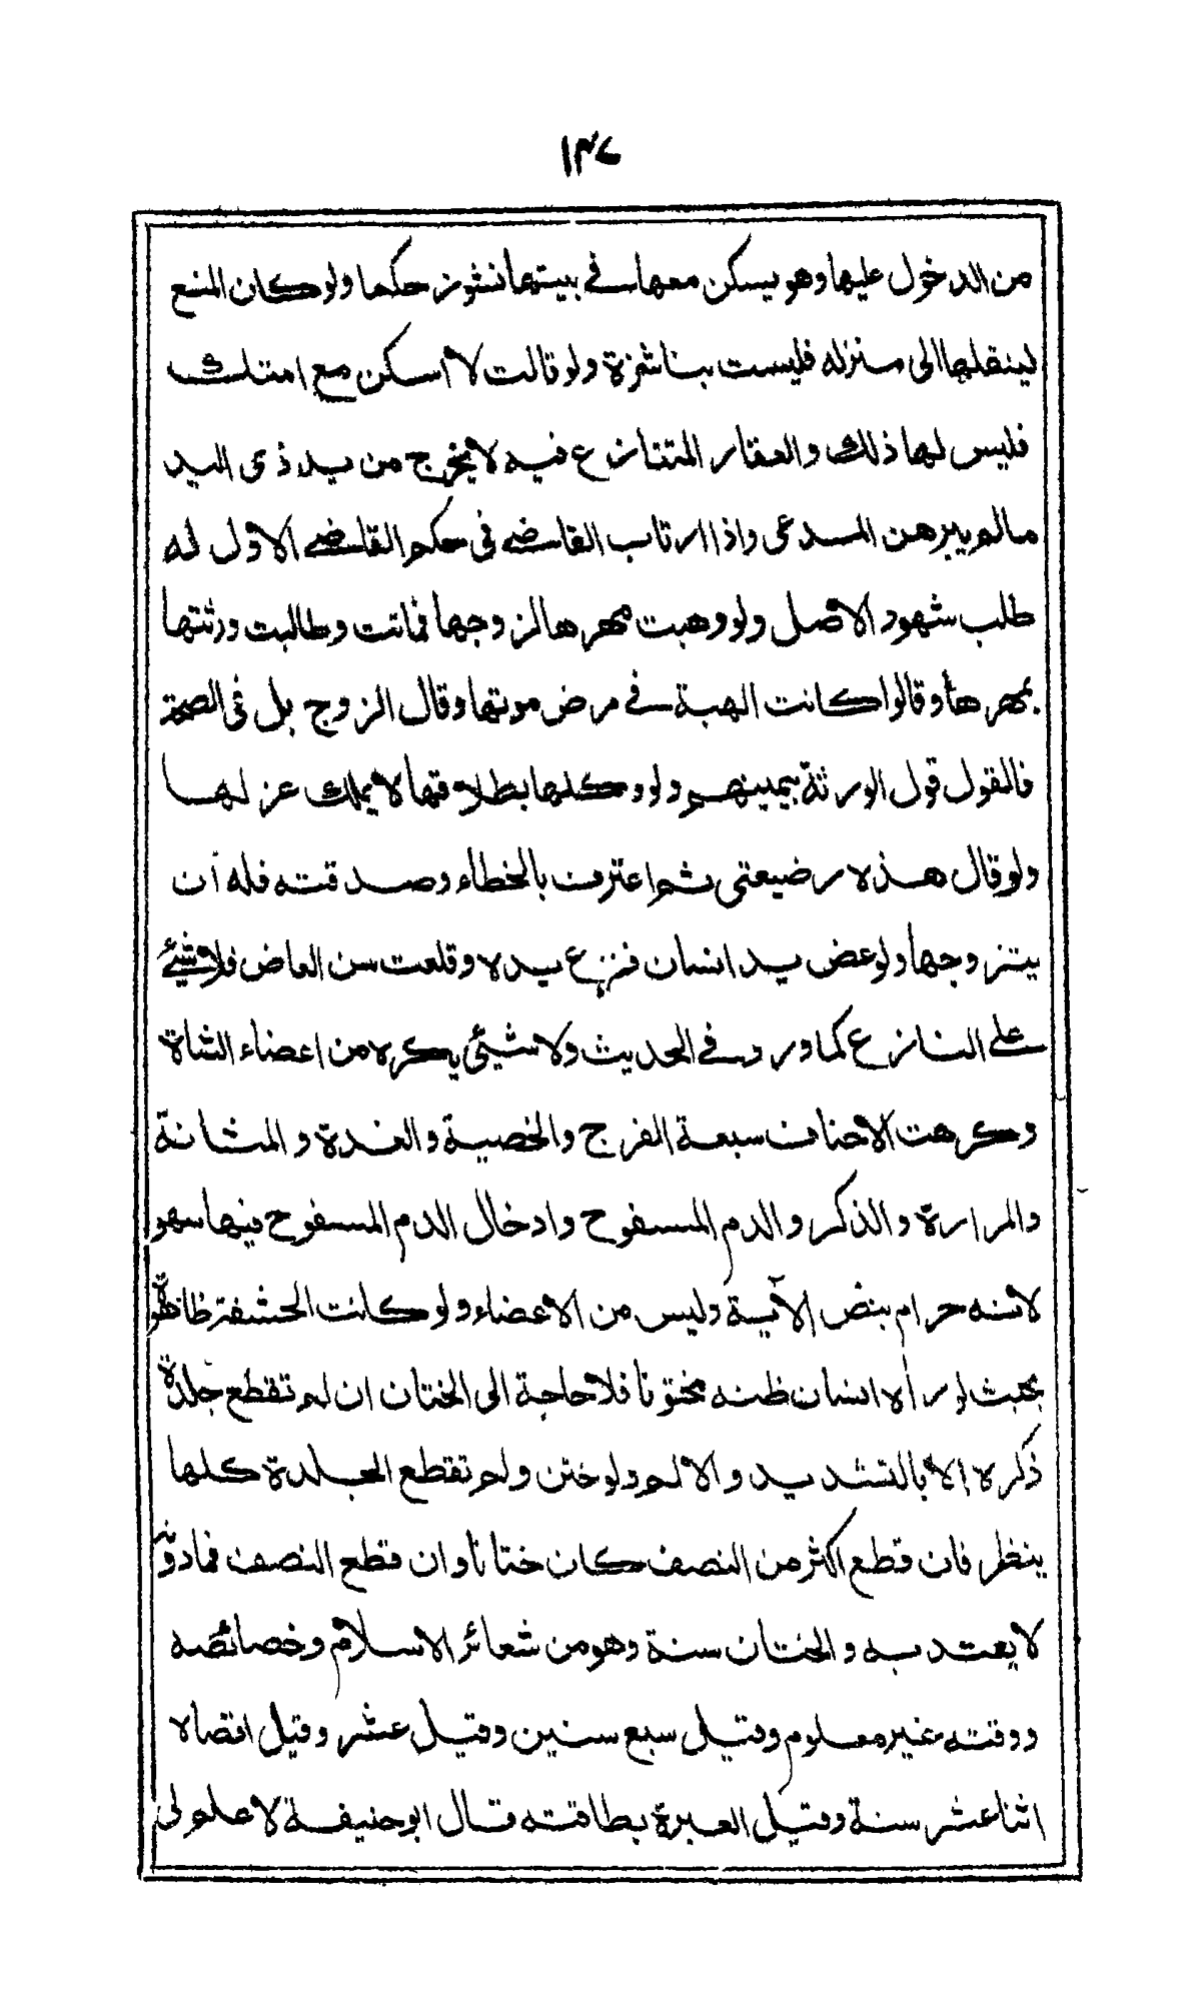 ١٣٧
من الدخول عليها وهو يسكن معها في بيتها نشوز حكما ولو كان المنع
لينقلها الى منزله فليست بناشزة ولو قالت لا اسكن مع امتك
فليس لها ذلك والعقار المتنازع فيه لا يخرج من يد ذى اليد
مالم يبرهن المدعى واذا ارتاب القاضي في حكم القاضي الاول له
طلب شهود الاصل ولو وهبت مهرها لزوجها فماتت وطالبت ورثتها
بمهرها وقالوا كانت الهبة في مرض موتها وقال الزوج بل فى الصحة
فالقول قول الورثة بيمينهم ولو وكلها بطلاقها لا يملك عزلها
ولو قال هذه رضيعتى ثم اعترف بالخطاء وصدقته فله أن
يتزوجها ولو عض يد انسان فنزع يده وقلعت سن العاض فلا شيئ
على النازع كما ورد في الحديث ولا شيئى يكره من اعضاء الشاة
وكرهت الاحناف سبعة الفرج والخصية والغدة والمثانة
والمرارة والذكر والدم المسفوح وادخال الدم المسفوح فيها سهو
لانه حرام بنص الآية وليس من الاعضاء ولو كانت الحشفة ظاهرة
بحيث لو رأه انسان ظنه مختونا فلا حاجة الى الختان ان لم تقطع جلدة
ذكره الا بالتشديد والالم ولو ختن ولم تقطع الجلدة كلها
ينظر فان قطع اكثر من النصف كان ختانا وان قطع النصف فما دونه
لا يعتد به والختان سنة وهو من شعائر الاسلام وخصائصه
ووقته غير معلوم وقيل سبع سنين وقيل عشر وقيل اقصاه
اثنا عشر سنة وقيل العبرة بطاقته قال ابو حنيفة لا علم لى